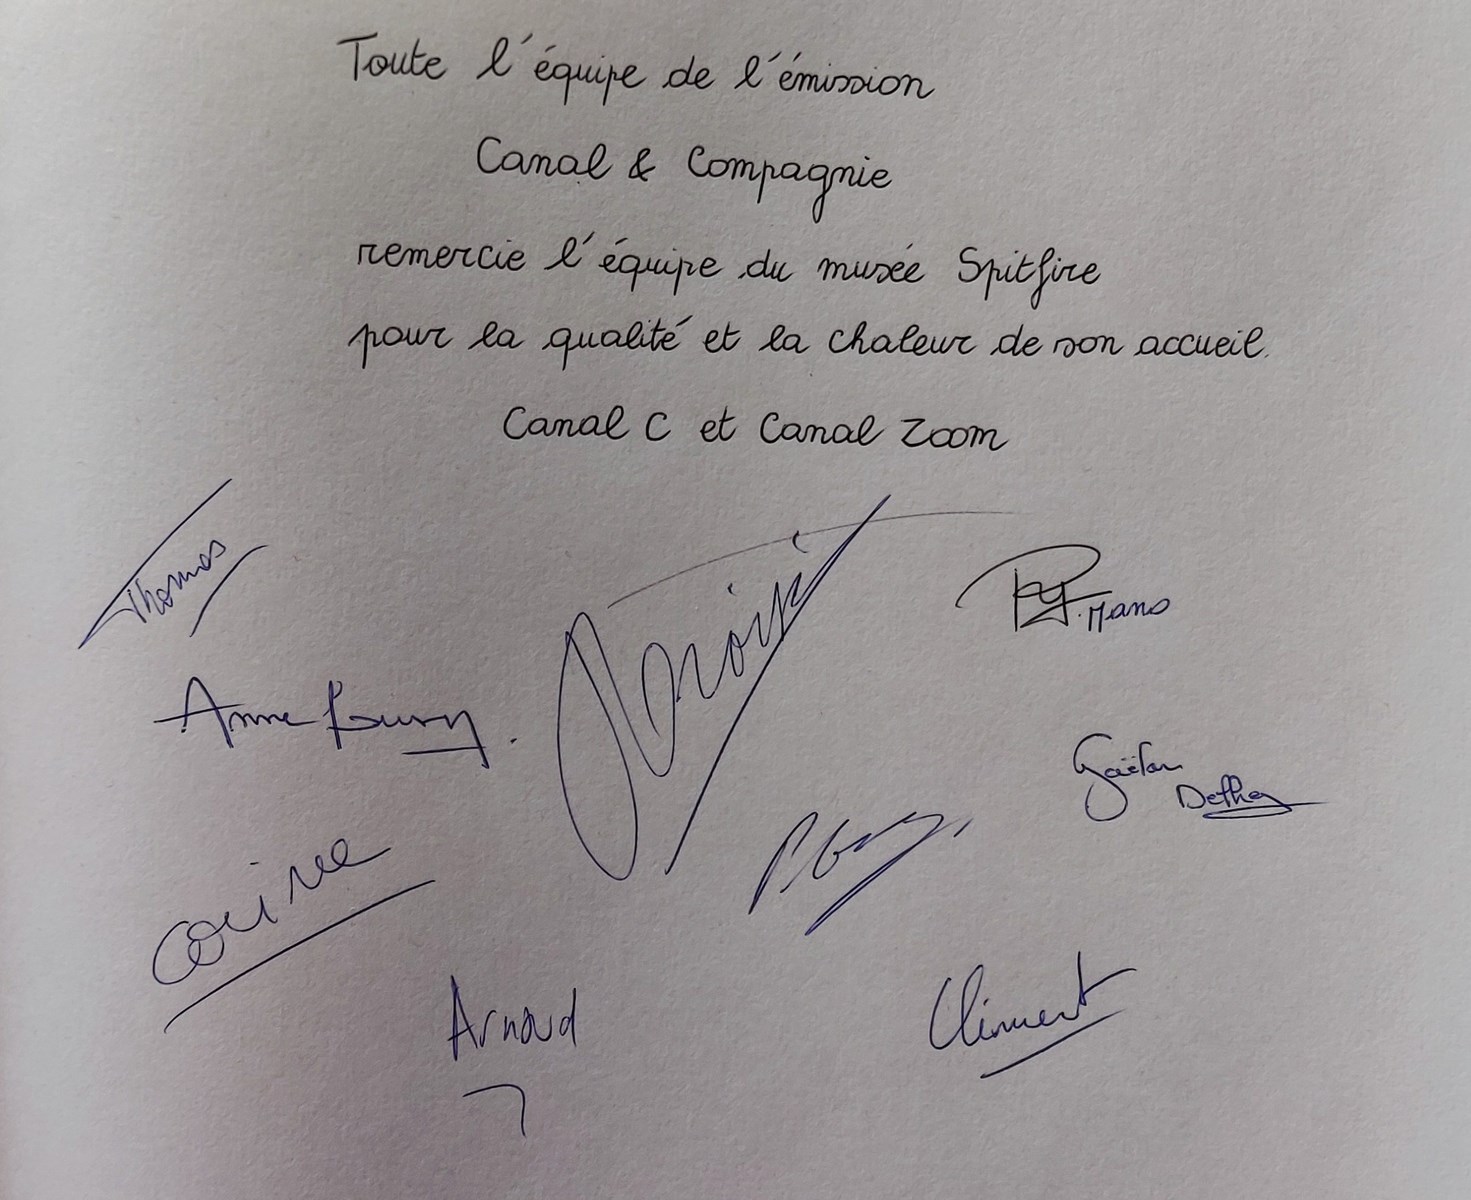 Toute l'équipe de l'émission
Canal & Compagnie
remercie l'équipe du musée Spitfire
pour la qualité et la chaleur de son accueil.
Canal C et Canal Zoom
Thomas
Mano
Anne
Gaëtan
Arnaud
Clément